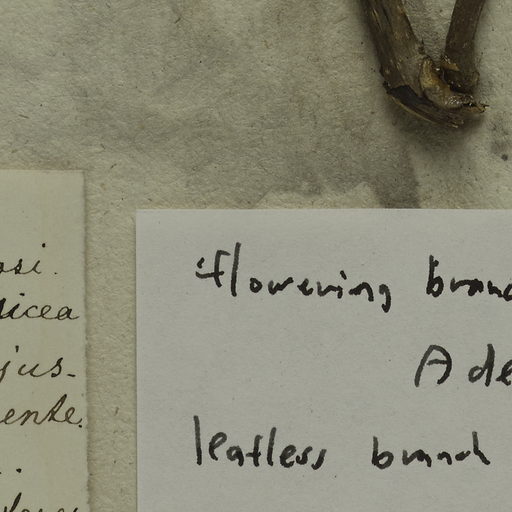 osi.
dicea
jus-
ente.
flowering branc
Ade
leafless branch